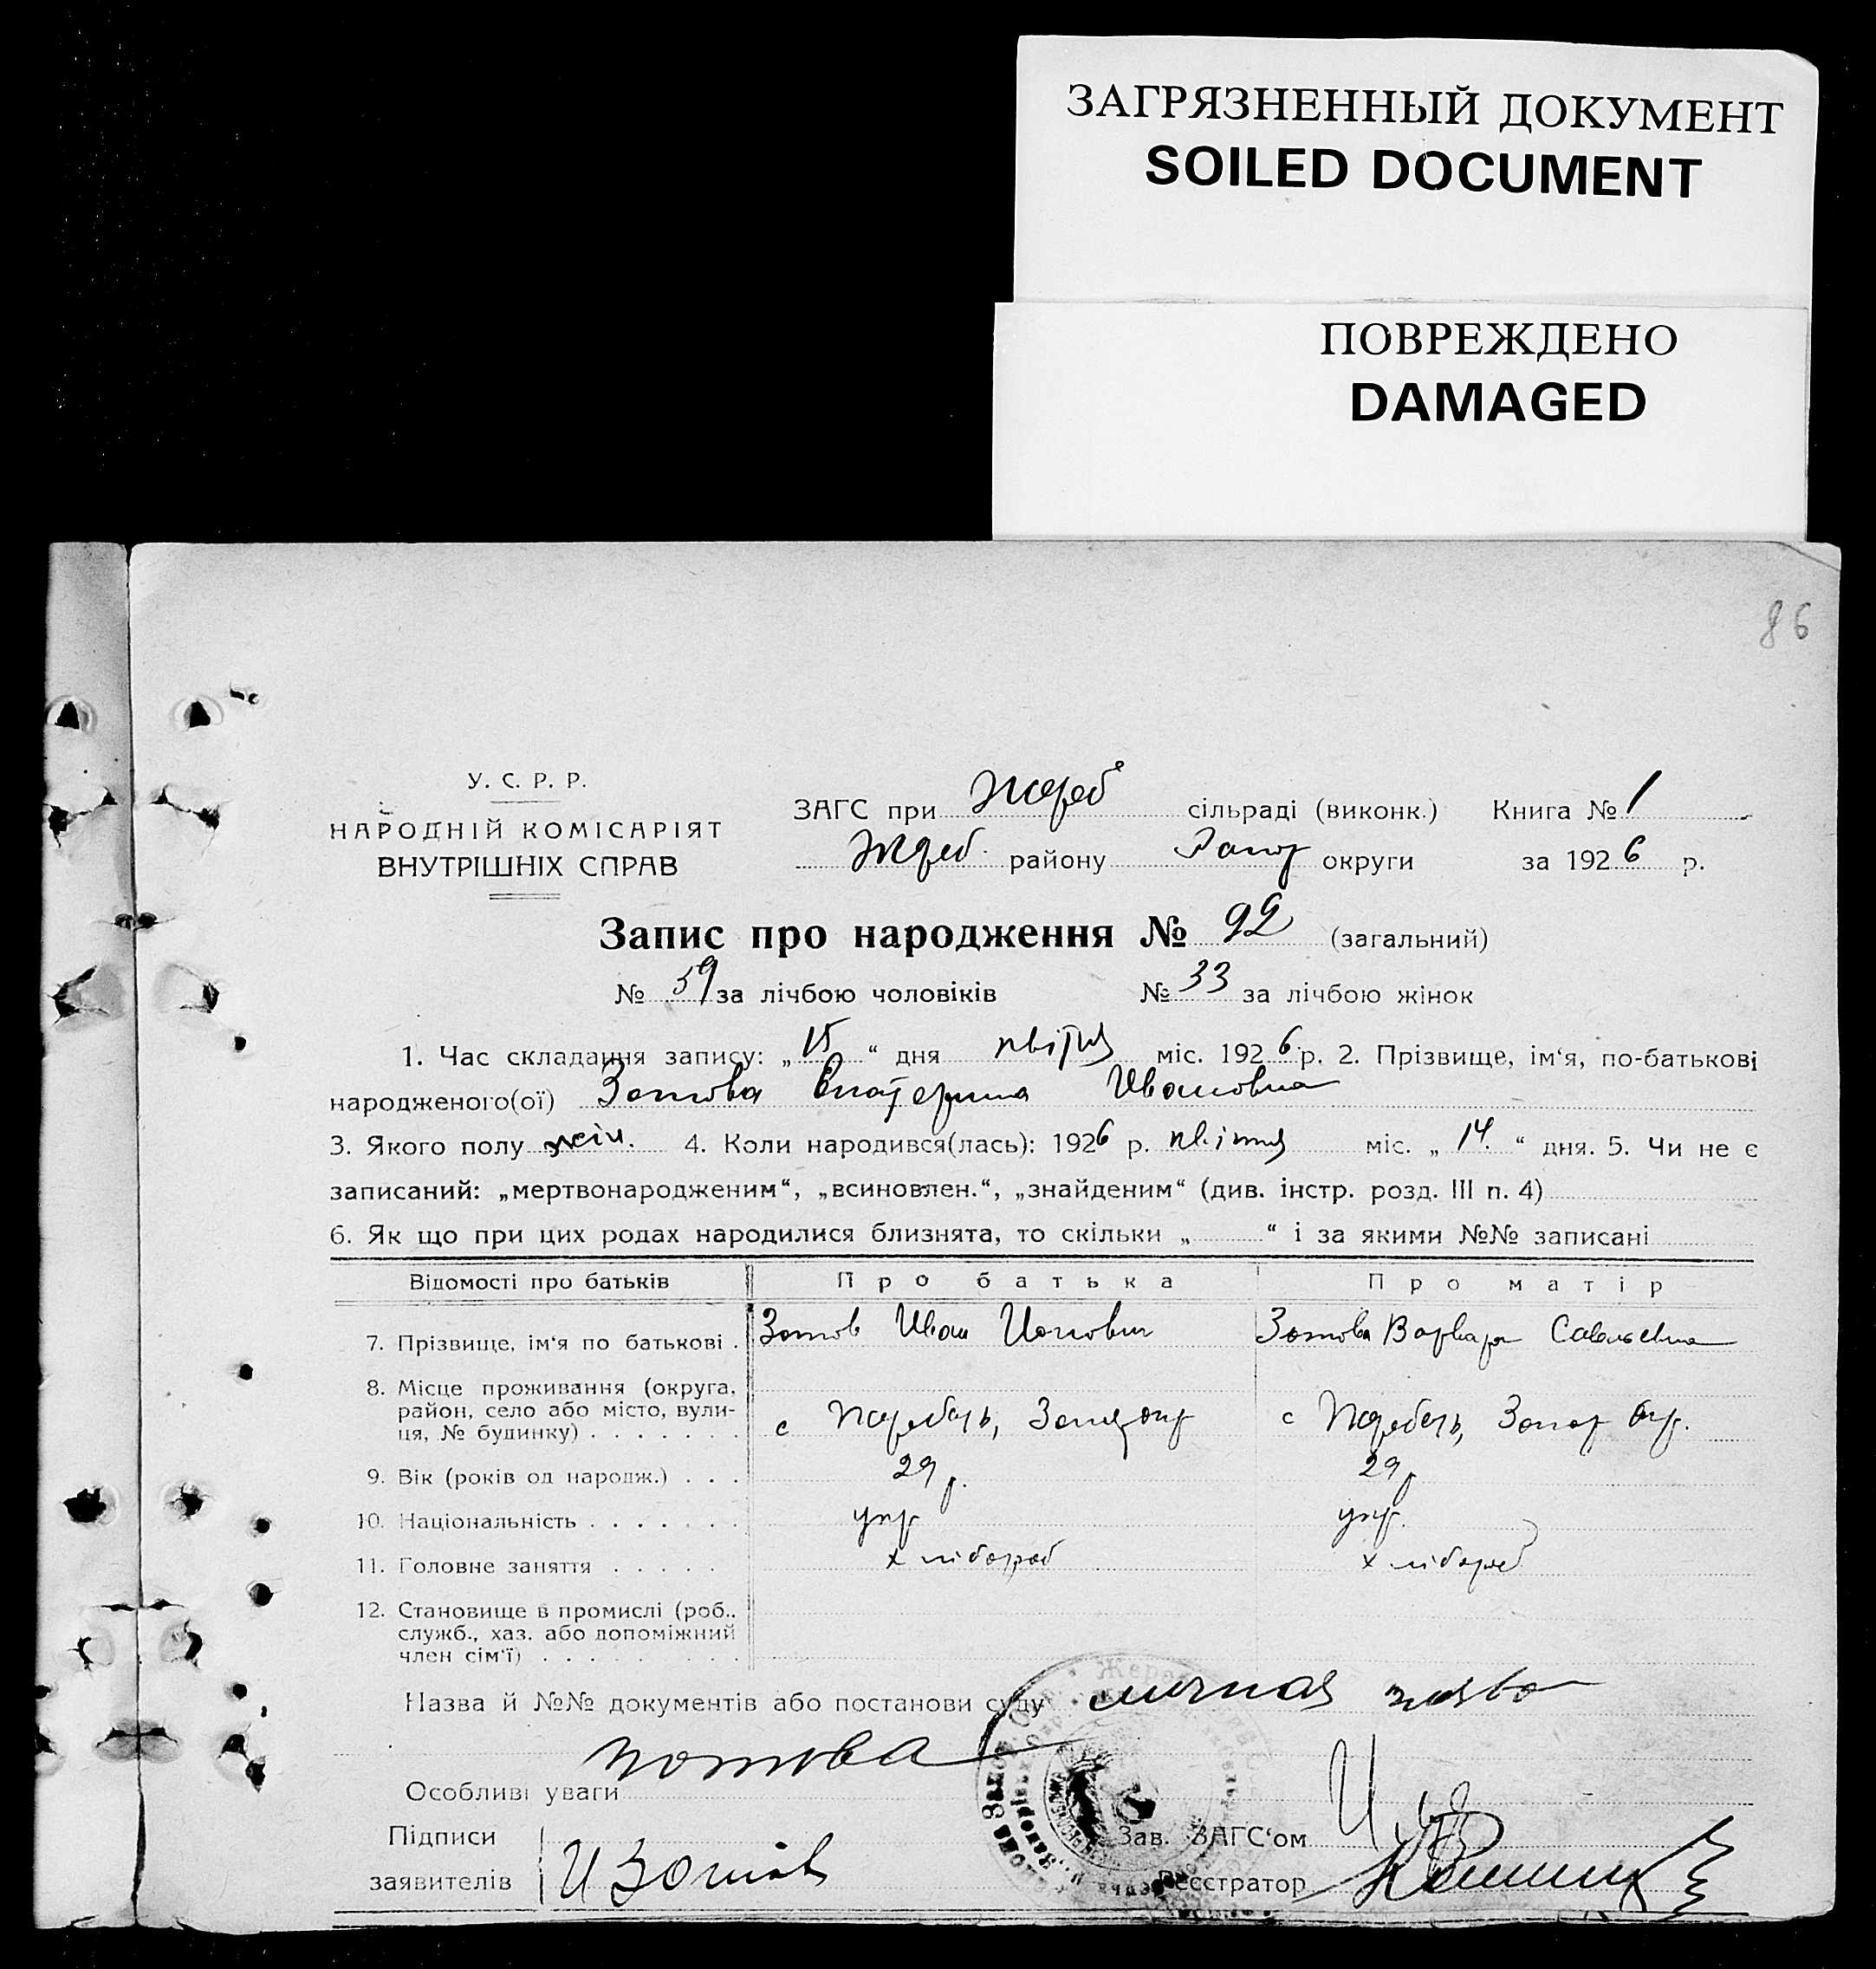 ЗАГРЯЗНЕННЫЙ ДОКУМЕНТ
SOILED DOCUMENT
ПОВРЕЖДЕНО
DAMAGED
86
У. С. Р. Р.
НАРОДНІЙ КОМІСАРІЯТ
ВНУТРІШНІХ СПРАВ
ЗАГС при Жереб сільраді (виконк.) Книга № 1
Жереб. району Запор округи за 1926 р.
Запис про народження № 92 (загальний)
№ 59 за лічбою чоловіків № 33 за лічбою жінок
1. Час складання запису: „15“ дня квітня міс. 1926 р. 2. Прізвище, ім‘я, по-батькові
народженого(ої) Зотова Екатерина Ивановна
3. Якого полу жін. 4. Коли народився(лась): 1926 р. квітня міс. „14.“ дня. 5. Чи не є
записаний: „мертвонародженим“, „всиновлен.“, „знайденим“ (див. інстр. розд. III п. 4)
6. Як що при цих родах народилися близнята, то скільки „ “ і за якими №№ записані
Відомості про батьків Про батька Про матір
7. Прізвище, ім‘я по батькові . Зотов Иван Зотова Варвара Савельевна
8. Місце проживання (округа,
район, село або місто, вули-
ця, № будинку) . . . . . . . с Жеребець, Запор окр с Жеребець, Запор окр.
9. Вік (років од народж.) . . . 29 р. 29 р
10. Національність . . . . . . . укр укр.
11. Головне заняття . . . . . хлібороб хлібороб
12. Становище в промислі (роб.,
служб., хаз. або допоміжний
член сім‘ї) . . . . . . . . .
Назва й №№ документів або постанови суду личная заява
Зотова
Особливі уваги
Підписи
заявителів И Зотов
Зав. ЗАГС‘ом
Реєстратор